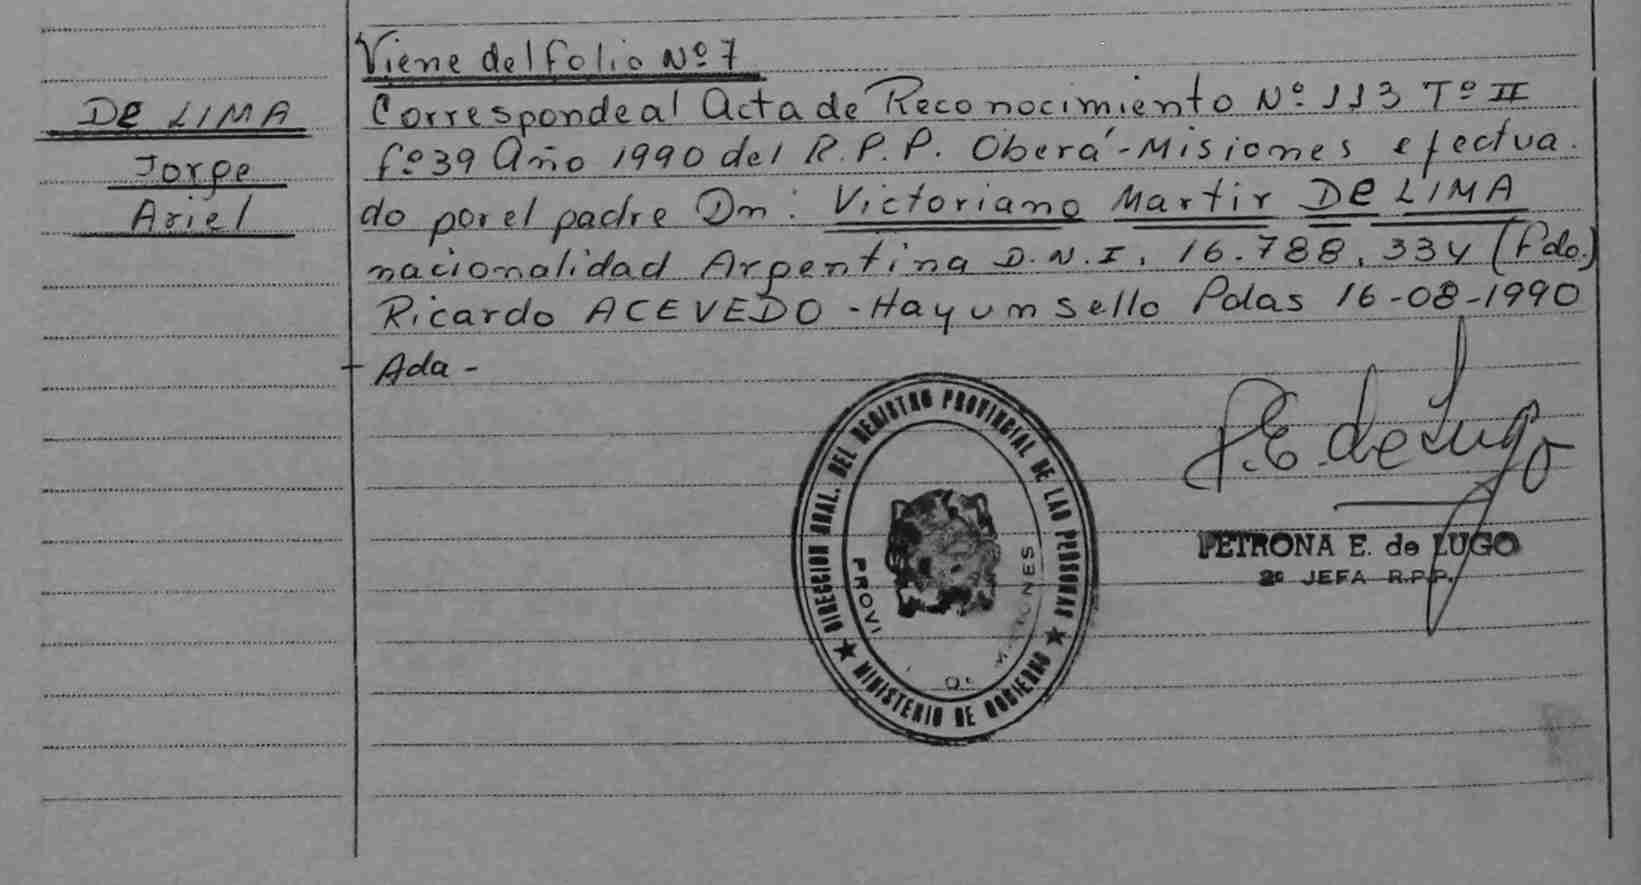 Viene del folio Nº 7
DE LIMA
Jorge
Ariel
Corresponde al Acta de Reconocimiento Nº 113 Tº II
fº 39 Año 1990 del R.P.P. Oberá-Misiones efectua.
do por el padre Dn: Victoriano Martir DE LIMA
nacionalidad Argentina D.N.I. 16.788.334 (Fdo.)
Ricardo ACEVEDO - Hay un sello Pdas 16-08-1990
Ada -
DIRECCION GRAL. DEL REGISTRO PROVINCIAL DE LAS PERSONAS
★ MINISTERIO DE GOBIERNO ★
PROVI
MISIONES
P.E. de Lugo
PETRONA E. de LUGO
2º JEFA R.P.P.